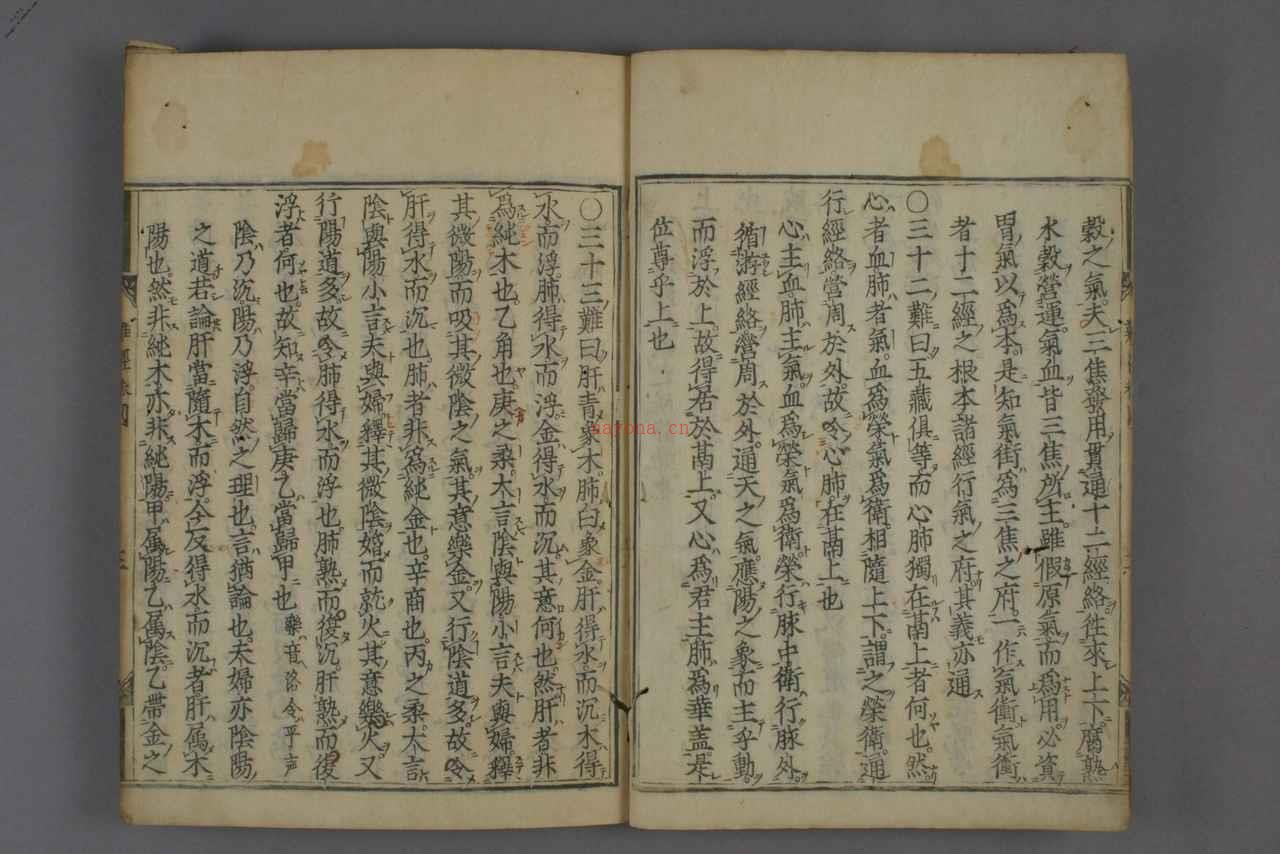 穀之氣夫三焦發用貫通十二經絡往來上下腐熟
水穀營運氣血皆三焦所主雖假原氣而爲用必資
胃氣以爲本是知氣街爲三焦之府一作氣衝氣衝
者十二經之根本諸經行氣之府其義亦通
〇三十二難曰五藏俱等而心肺獨在鬲上者何也然
心者血肺者氣血爲榮氣爲衛相隨上下謂之榮衛通
行經絡營周於外故令心肺在鬲上也
心主血肺主氣血爲榮氣爲衛榮行脉中衛行脉外
循游經絡營周於外通天之氣應陽之象而主乎動
而浮於上故得居於鬲上又心爲君主肺爲華蓋是
位尊乎上也
〇三十三難曰肝青象木肺白象金肝得水而沉木得
水而浮肺得水而浮金得水而沉其意何也然肝者非
爲純木也乙角也庚之柔大言陰與陽小言夫與婦釋
其微陽而吸其微陰之氣其意樂金又行陰道多故令
肝得水而沉也肺者非爲純金也辛商也丙之柔大言
陰與陽小言夫與婦釋其微陰婚而就火其意樂火又
行陽道多故令肺得水而浮也肺熟而復沉肝熟而復
浮者何也故知辛當歸庚乙當歸甲也 樂音洛令平声
陰乃沉陽乃浮自然之理也言猶論也夫婦亦陰陽
之道若論肝當隨木而浮今反得水而沉者肝属木
陽也然非純木亦非純陽甲属陽乙属陰乙帶金之
難經卷四
nayona.cn